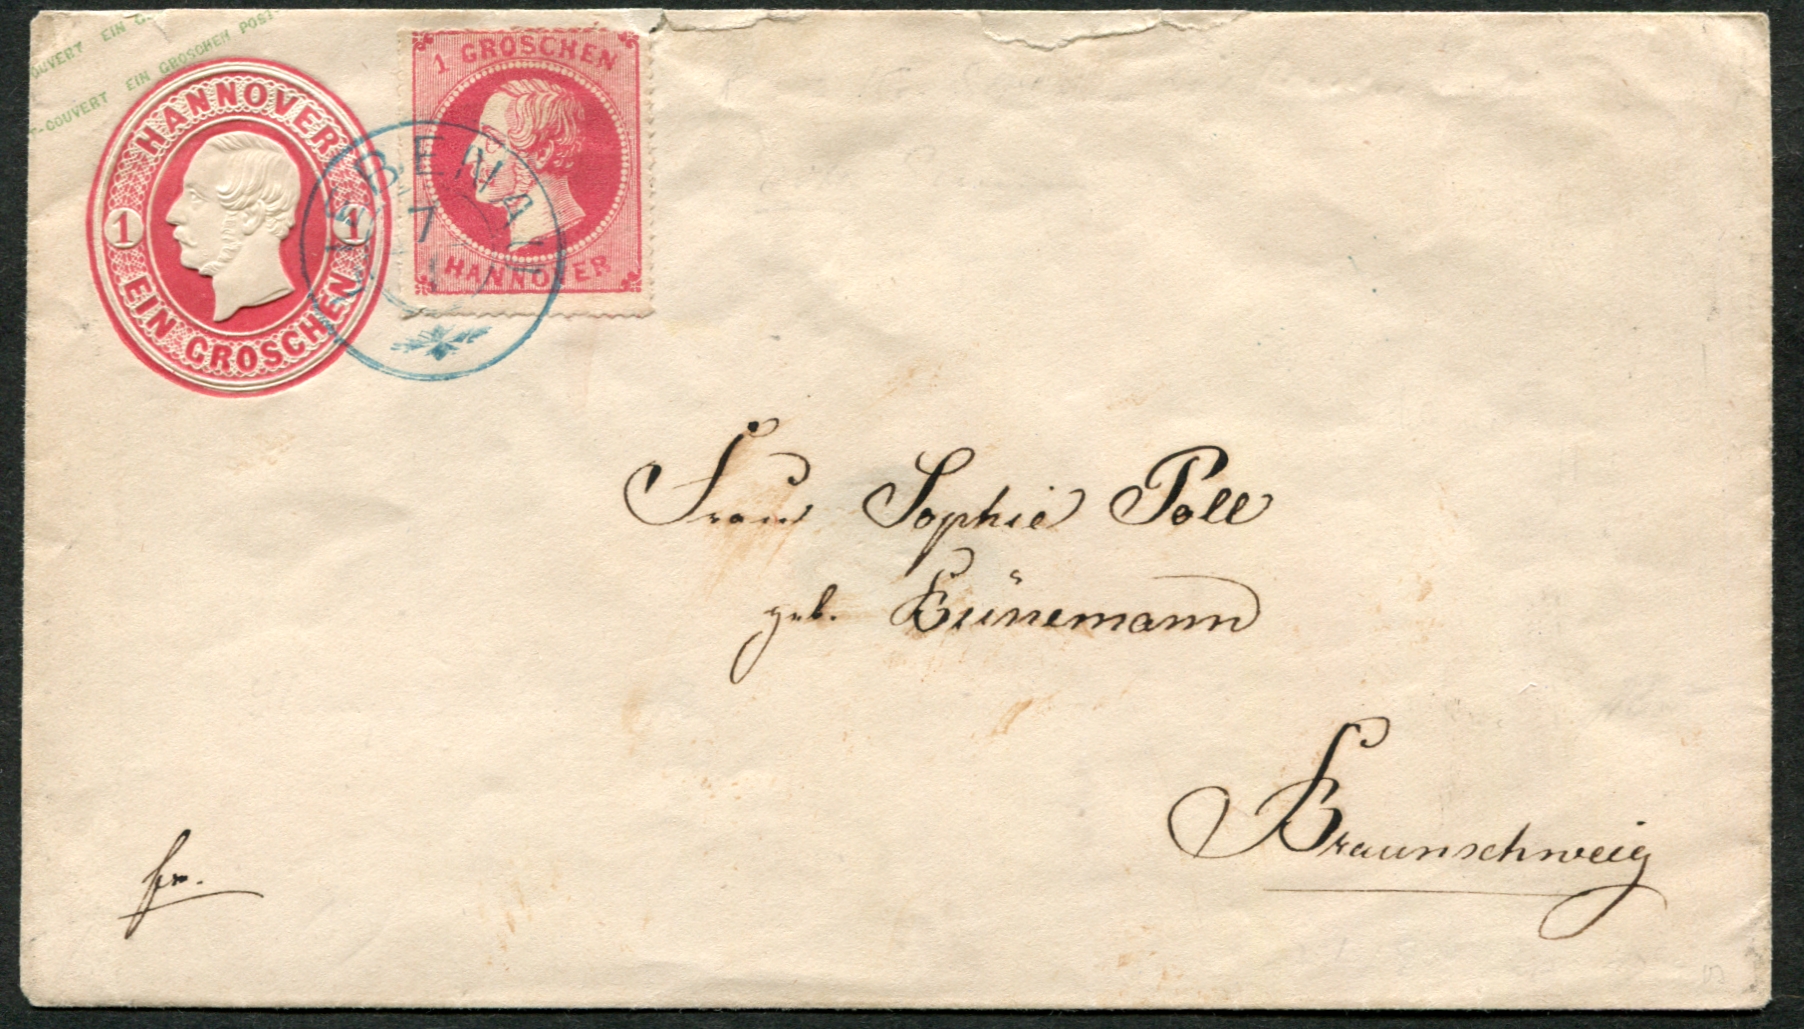 OUVERT EIN G
T-COUVERT EIN GROSCHEN POST
HANNOVER
1 1
EIN GROSCHEN
1 GROSCHEN
HANNOVER
7
Frau Sophie Poll
geb. Bünemann
Braunschweig
fr.